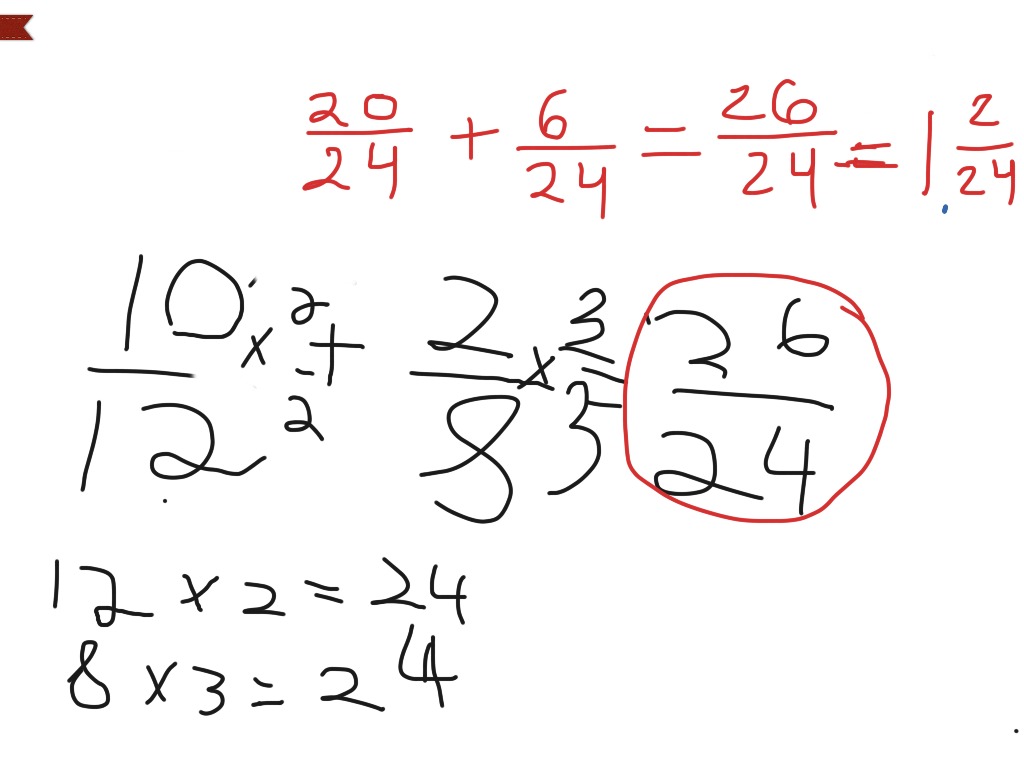 20/24 + 6/24 = 26/24 = 1 2/24
10/12 × 2/2 + 2/8 × 3/3 = 26/24
12 × 2 = 24
8 × 3 = 24